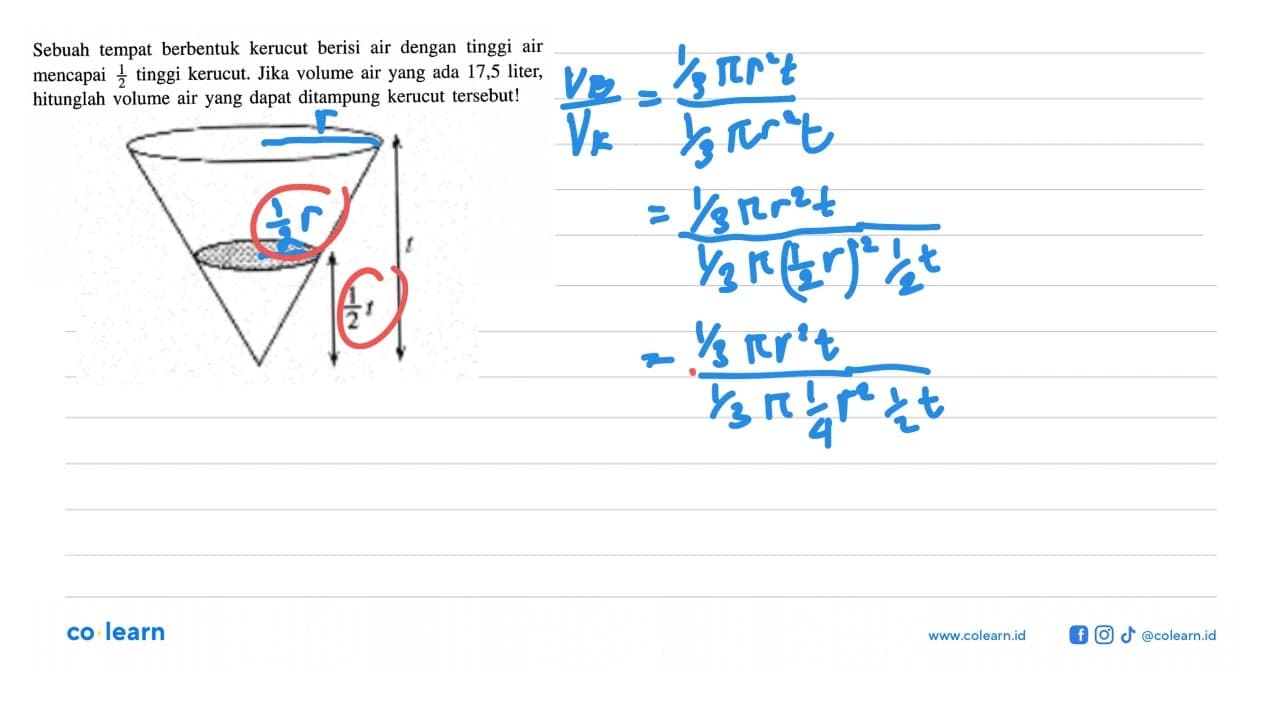 Sebuah tempat berbentuk kerucut berisi air dengan tinggi air
mencapai 1/2 tinggi kerucut. Jika volume air yang ada 17,5 liter,
hitunglah volume air yang dapat ditampung kerucut tersebut!
r
1/2 r
t
1/2 t
VB/VK = 1/3 πr²t / 1/3 πr²t
= 1/3 πr²t / 1/3 π(1/2 r)² 1/2 t
= 1/3 πr²t / 1/3 π 1/4 r² 1/2 t
co learn
www.colearn.id
@colearn.id